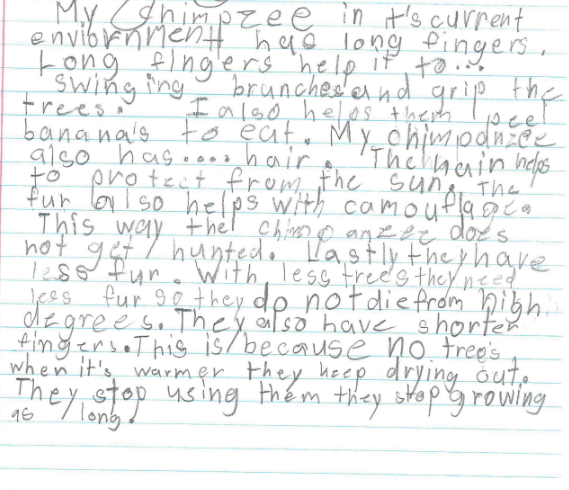 My Chimpzee in it's current
enviornment has long fingers.
Long fingers help it to...
Swinging branches and grip the
trees. I also helps them peel
banana's to eat. My chimpanzee
also has.... hair. The hair helps
to protect from the sun. The
fur also helps with camouflage
This way the chimpanzee does
not get hunted. Lastly they have
less fur. With less tree's they need
less fur so they do not die from high
degrees. They also have shorter
fingers. This is because no tree's
when it's warmer they keep drying out.
They stop using them they stop growing
as long.